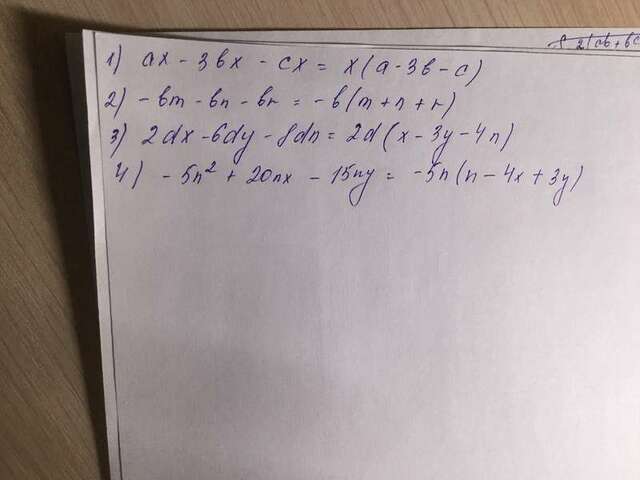 1) ax - 3bx - cx = x(a - 3b - c)
2) -bm - bn - br = -b(m + n + r)
3) 2dx - 6dy - 8dn = 2d(x - 3y - 4n)
4) -5n² + 20nx - 15ny = -5n(n - 4x + 3y)